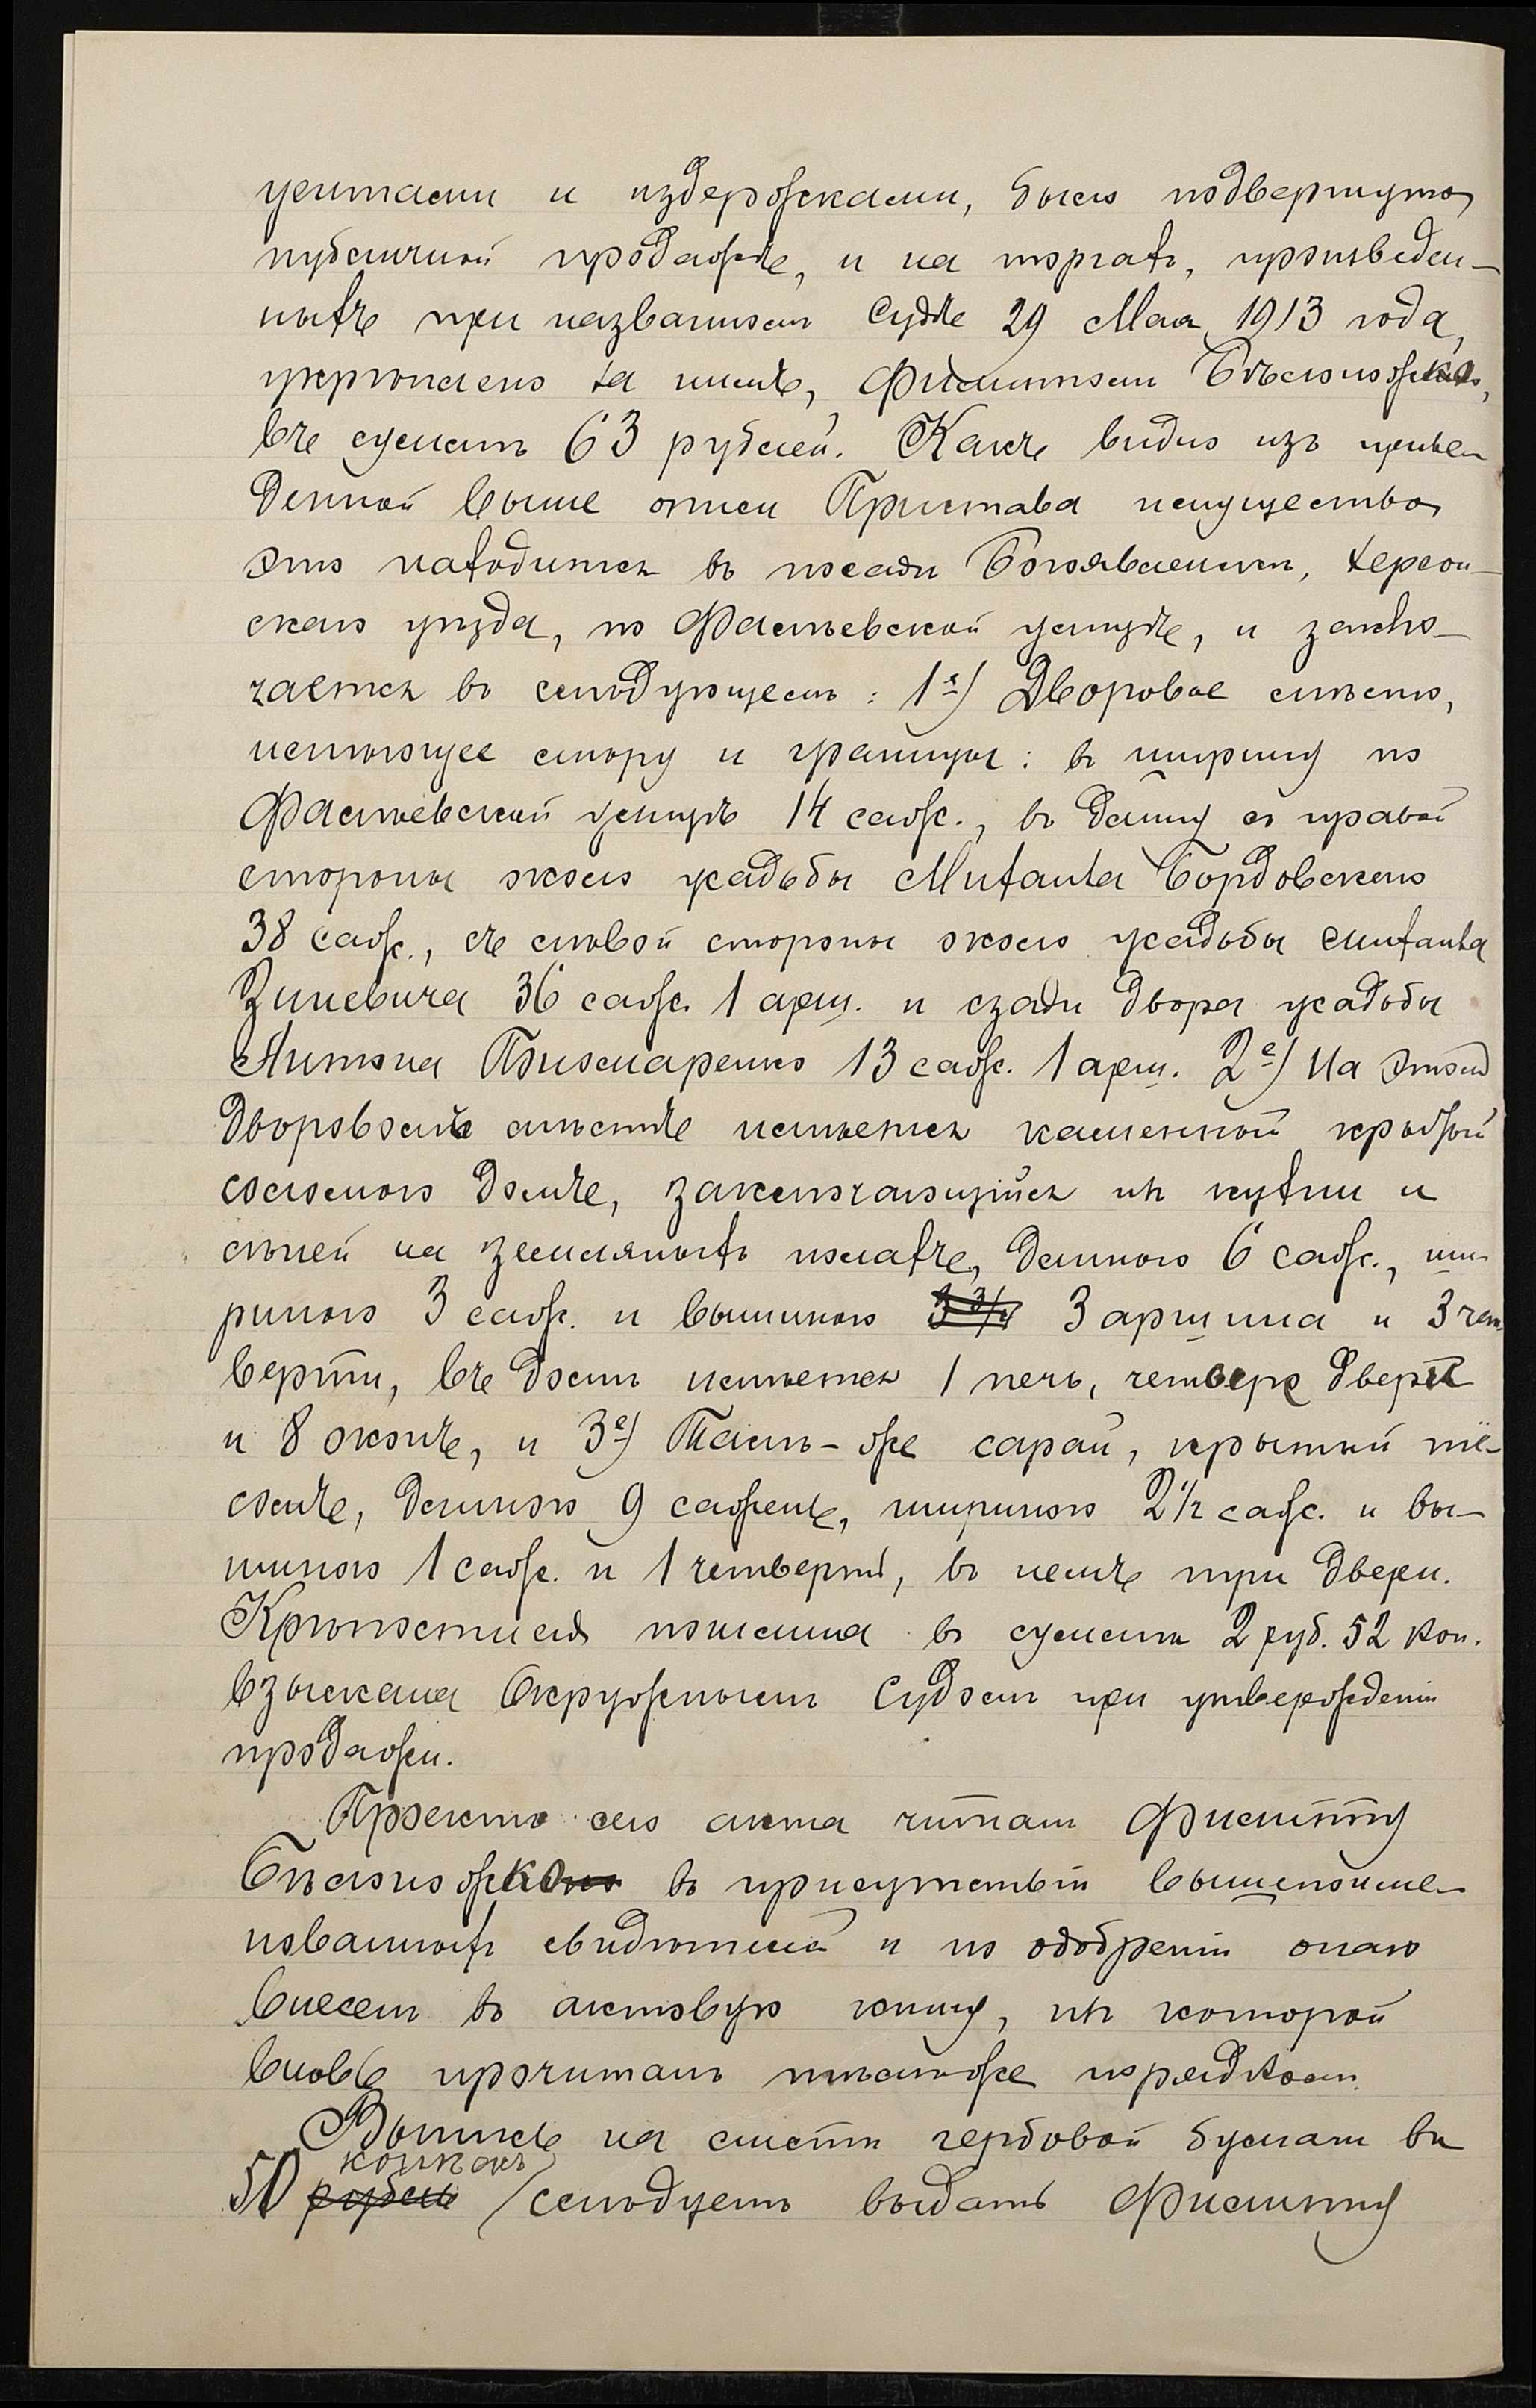 центами и издержками, было подвергнуто
публичной продажѣ, и на торгахъ, произведен-
ныхъ при названномъ Судѣ 29 Мая 1913 года,
укрѣплено за нимъ, Филиппом Бѣлоножко,
въ суммѣ 63 рублей. Какъ видно изъ приве-
денной выше описи Пристава имущество
это находится въ посадѣ Богоявленскѣ, Херсон-
скаго уѣзда, по Фалѣевской улицѣ, и заклю-
чается въ слѣдующемъ: 1е) Дворовое мѣсто,
имѣющее мѣру и границы: въ ширину по
Фалѣевской улицѣ 14 саж., въ длину съ правой
стороны около усадьбы Михаила Бордовскаго
38 саж., съ лѣвой стороны около усадьбы Михаила
Зиневича 36 саж. 1 арш. и сзади двора усадьбы
Антона Пономаренко 13 саж. 1 арш. 2е) На этомъ
дворовомъ мѣстѣ имѣется каменный крытый
соломою домъ, заключающійся изъ кухни и
сѣней на земляныхъ полахъ, длиною 6 саж., ши-
риною 3 саж. и вышиною 3 3/4 3 аршина и 3 чет-
верти, въ домѣ имѣется 1 печь, четверо дверей
и 8 оконъ, и 3е) Тамъ-же сарай, крытый тё-
сомъ, длиною 9 саженъ, шириною 2 1/2 саж. и вы-
шиною 1 саж. и 1 четверть, въ немъ три двери.
Крѣпостная пошлина въ суммѣ 2 руб. 52 коп.
взыскана Окружнымъ Судомъ при утвержденіи
продажи.
Проектъ сего акта читанъ Филиппу
Бѣлоножко въ присутствіи вышепоиме-
нованныхъ свидѣтелей и по одобреніи онаго
внесенъ въ актовую книгу, изъ которой
вновь прочитанъ тѣмъ же порядкомъ.
Выпись на листѣ гербовой бумаги въ
копѣекъ
50 рубль слѣдуетъ выдать Филиппу